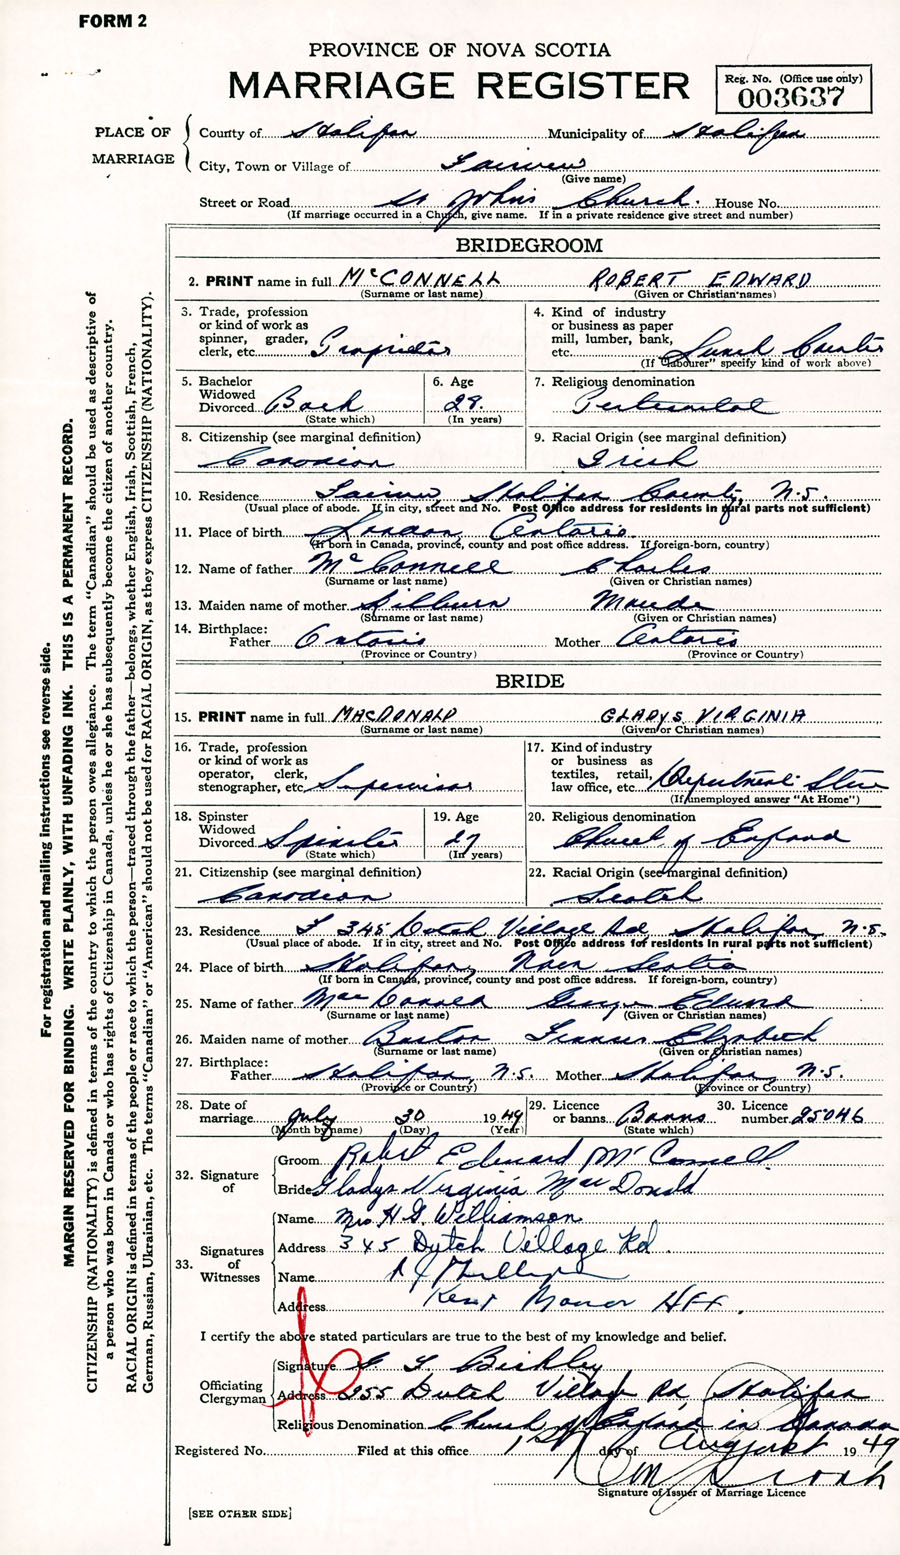 FORM 2
PROVINCE OF NOVA SCOTIA
MARRIAGE REGISTER
Reg. No. (Office use only)
003637
PLACE OF MARRIAGE
County of Halifax Municipality of Halifax
City, Town or Village of Fairview
(Give name)
Street or Road St Johns Church. House No.
(If marriage occurred in a Church, give name. If in a private residence give street and number)
BRIDEGROOM
2. PRINT name in full McCONNELL ROBERT EDWARD
(Surname or last name) (Given or Christian names)
3. Trade, profession or kind of work as spinner, grader, clerk, etc. Proprietor
4. Kind of industry or business as paper mill, lumber, bank, etc. Lunch Counter
(If "labourer" specify kind of work above)
5. Bachelor Widowed Divorced Bach
(State which)
6. Age 28.
(In years)
7. Religious denomination Pentecostal
8. Citizenship (see marginal definition) Canadian
9. Racial Origin (see marginal definition) Irish
10. Residence Fairview, Halifax County, N.S.
(Usual place of abode. If in city, street and No. Post Office address for residents in rural parts not sufficient)
11. Place of birth London Ontario
(If born in Canada, province, county and post office address. If foreign-born, country)
12. Name of father McConnell Charles
(Surname or last name) (Given or Christian names)
13. Maiden name of mother Kilburn Maude
(Surname or last name) (Given or Christian names)
14. Birthplace:
Father Ontario Mother Ontario
(Province or Country) (Province or Country)
BRIDE
15. PRINT name in full MACDONALD GLADYS VIRGINIA
(Surname or last name) (Given or Christian names)
16. Trade, profession or kind of work as operator, clerk, stenographer, etc. Supervisor
17. Kind of industry or business as textiles, retail, law office, etc. Department Store
(If unemployed answer "At Home")
18. Spinster Widowed Divorced Spinster
(State which)
19. Age 27
(In years)
20. Religious denomination Church of England
21. Citizenship (see marginal definition) Canadian
22. Racial Origin (see marginal definition) Scotch
23. Residence 345 Dutch Village Rd, Halifax, N.S.
(Usual place of abode. If in city, street and No. Post Office address for residents in rural parts not sufficient)
24. Place of birth Halifax, Nova Scotia
(If born in Canada, province, county and post office address. If foreign-born, country)
25. Name of father MacDonald George Edward
(Surname or last name) (Given or Christian names)
26. Maiden name of mother Frances Elizabeth
(Surname or last name) (Given or Christian names)
27. Birthplace:
Father Halifax, N.S. Mother Halifax, N.S.
(Province or Country) (Province or Country)
28. Date of marriage July 30 1949
(Month by name) (Day) (Year)
29. Licence or banns Banns
(State which)
30. Licence number 25046
32. Signature of
Groom Robert Edward McConnell.
Bride Gladys Virginia MacDonald
33. Signatures of Witnesses
Name Mrs H. G. Williamson
Address 345 Dutch Village Rd.
Name
Address Kent Manor Hfx.
I certify the above stated particulars are true to the best of my knowledge and belief.
Officiating Clergyman
Signature
Address 255 Dutch Village Rd, Halifax
Religious Denomination Church of England in Canada
Registered No. Filed at this office 1st day of August 1949
Signature of Issuer of Marriage Licence
[SEE OTHER SIDE]
For registration and mailing instructions see reverse side.
MARGIN RESERVED FOR BINDING. WRITE PLAINLY, WITH UNFADING INK. THIS IS A PERMANENT RECORD.
CITIZENSHIP (NATIONALITY) is defined in terms of the country to which the person owes allegiance. The term "Canadian" should be used as descriptive of
a person who was born in Canada or who has rights of Citizenship in Canada, unless he or she has subsequently become the citizen of another country.
RACIAL ORIGIN is defined in terms of the people or race to which the person—traced through the father—belongs, whether English, Irish, Scottish, French,
German, Russian, Ukrainian, etc. The terms "Canadian" or "American" should not be used for RACIAL ORIGIN, as they express CITIZENSHIP (NATIONALITY).